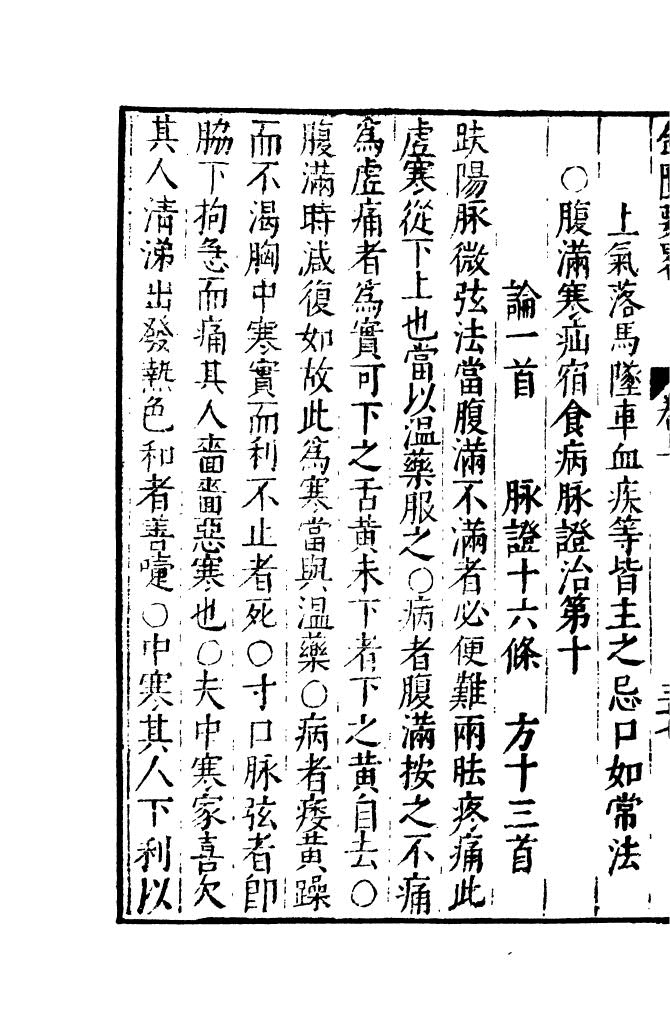 上氣落馬墜車血疾等皆主之忌口如常法
○腹滿寒疝宿食病脉證治第十
論一首 脉證十六條 方十三首
趺陽脉微弦法當腹滿不滿者必便難兩胠疼痛此
虛寒從下上也當以溫藥服之○病者腹滿按之不痛
爲虛痛者爲實可下之舌黃未下者下之黃自去○
腹滿時減復如故此爲寒當與溫藥○病者痿黃躁
而不渴胸中寒實而利不止者死○寸口脉弦者卽
脇下拘急而痛其人嗇嗇惡寒也○夫中寒家喜欠
其人清涕出發熱色和者善嚏○中寒其人下利以